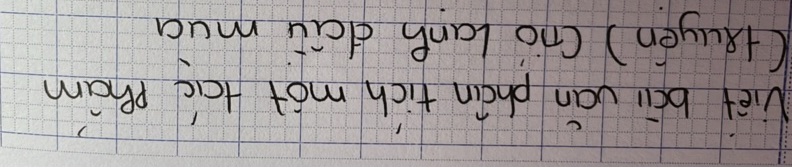 Viết bài văn phân tích một tác phẩm
(truyện) Gió lạnh đầu mùa